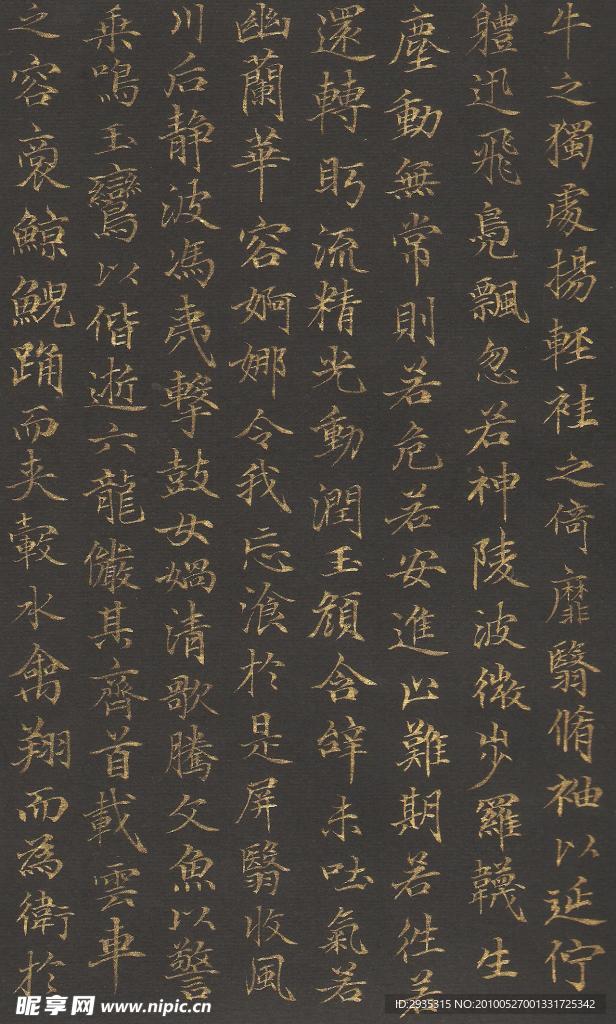 牛之獨處揚輕袿之倚靡翳脩袖以延佇
軆迅飛鳧飄忽若神陵波微步羅韈生
塵動無常則若危若安進止難期若往若
還轉眄流精光動潤玉顏含辭未吐氣若
幽蘭華容婀娜令我忘湌於是屏翳收風
川后静波馮夷擊鼓女媧清歌騰文魚以警
乘鳴玉鸞以偕逝六龍儼其齊首載雲車
之容裔鯨鯢踊而夾轂水禽翔而為衛於
昵享网 www.nipic.cn
ID:2935315 NO:20100527001331725342